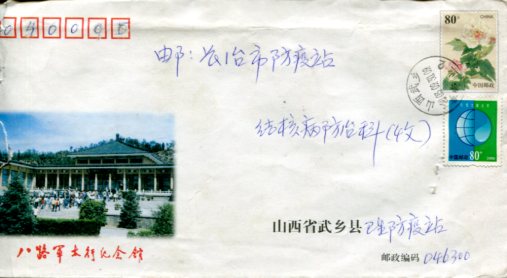 046000
邮：长治市防疫站
结核病防治科(收)
山西省武乡县卫生防疫站
邮政编码 046300
八路军太行纪念馆
80分
CHINA
中国邮政
80分
中国邮政
山西武乡